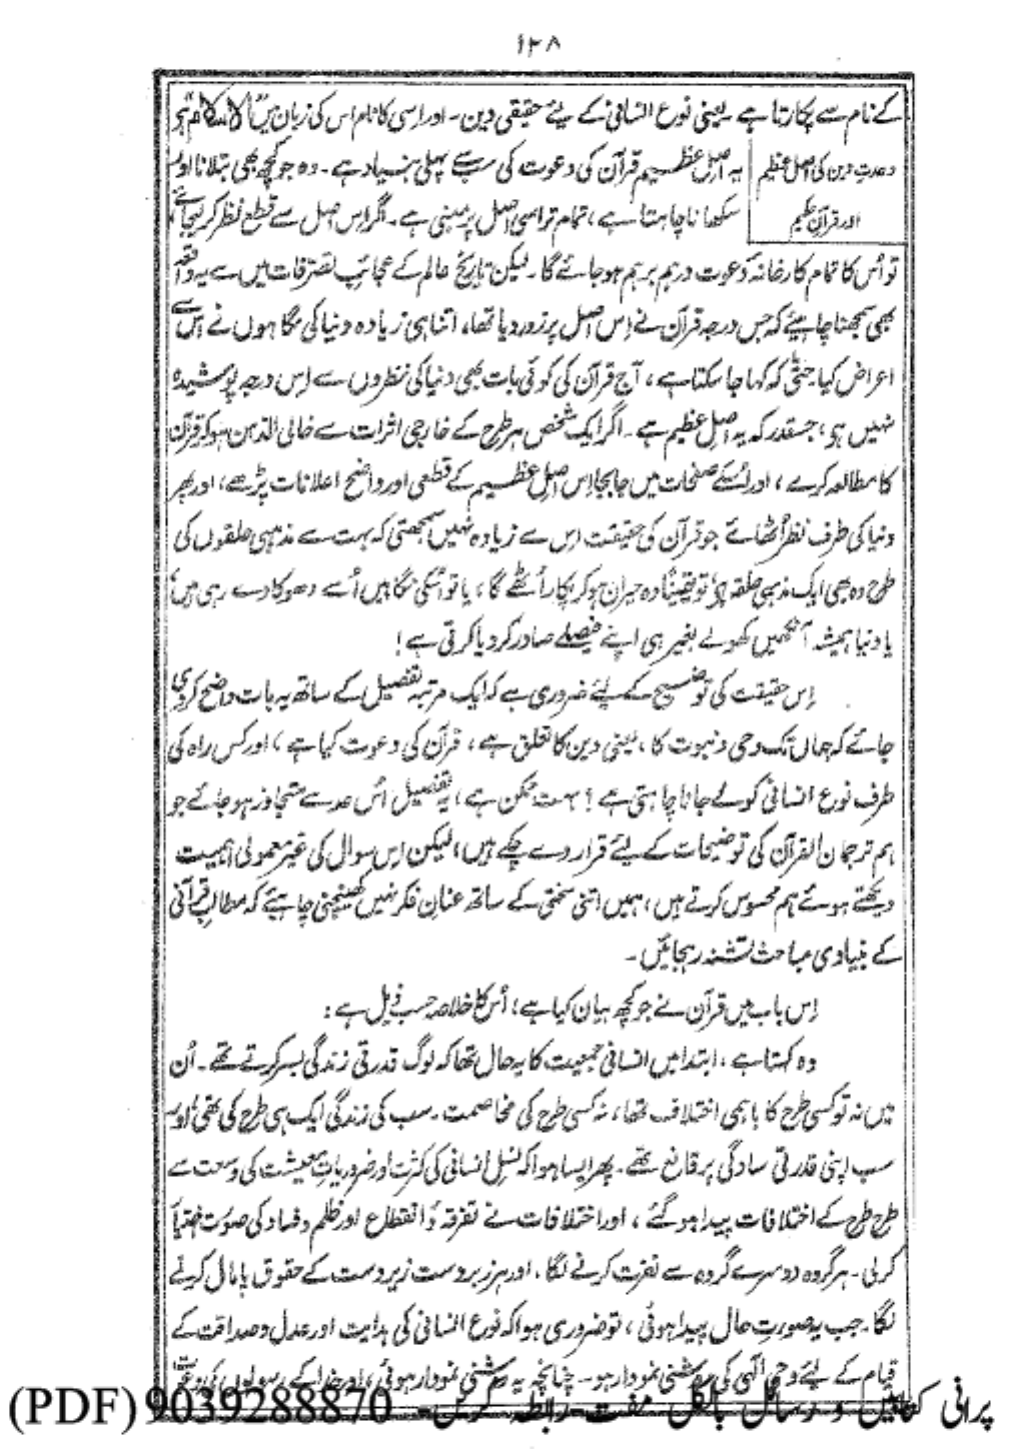 ۱۲۸
کے نام سے پکارتا ہے یعنی نوع انسانی کے لئے حقیقی دین۔ اور اسی کا نام اس کی زبان میں "الاسلام" ہے
وحدتِ دین کی اصل عظیم
اور قرآنِ حکیم
یہ اصلِ عظیم قرآن کی دعوت کی سب سے پہلی بنیاد ہے۔ وہ جو کچھ بھی بتلانا اور
سکھانا چاہتا ہے، تمام تر اسی اصل پر مبنی ہے۔ اگر اس اصل سے قطع نظر کر لیجائے،
تو اُس کا تمام کارخانۂ دعوت درہم برہم ہوجائے گا۔ لیکن تاریخ عالم کے عجائب تصرفات میں سے یہ واقعہ
بھی سمجھنا چاہیئے کہ جس درجہ قرآن نے اِس اصل پر زور دیا تھا، اتنا ہی زیادہ دنیا کی نگاہوں نے اس سے
اعراض کیا حتیٰ کہ کہا جا سکتا ہے، آج قرآن کی کوئی بات بھی دنیا کی نظروں سے اِس درجہ پوشیدہ
نہیں ہو، جسقدر کہ یہ اصلِ عظیم ہے۔ اگر ایک شخص ہر طرح کے خارجی اثرات سے خالی الذہن ہو کر قرآن
کا مطالعہ کرے، اور اسکے صفحات میں جابجا اِس اصلِ عظیم کے قطعی اور واضح اعلانات پڑھے، اور پھر
دنیا کی طرف نظر اُٹھائے جو قرآن کی حقیقت اِس سے زیادہ نہیں سمجھتی کہ بہت سے مذہبی حلقوں کی
طرح وہ بھی ایک مذہبی حلقہ ہے، تو یقیناً وہ حیران ہو کر پکار اُٹھے گا، یا تو اُسکی نگاہیں اُسے دھوکا دے رہی ہیں
یا دنیا ہمیشہ آنکھیں کھولے بغیر ہی اپنے فیصلے صادر کر دیا کرتی ہے!
اِس حقیقت کی توضیح کے لئے ضروری ہے کہ ایک مرتبہ تفصیل کے ساتھ یہ بات واضح کر دی
جائے کہ جہاں تک وحی و نبوت کا، یعنی دین کا تعلق ہے، قرآن کی دعوت کیا ہے، اور کس راہ کی
طرف نوع انسانی کو لے جانا چاہتی ہے؟ بہت ممکن ہے، یہ تفصیل اُس حد سے متجاوز ہو جائے جو
ہم ترجمان القرآن کی توضیحات کے لئے قرار دے چکے ہیں، لیکن اِس سوال کی غیر معمولی اہمیت
دیکھتے ہوئے ہم محسوس کرتے ہیں، ہمیں اتنی سختی کے ساتھ عنانِ فکر نہیں کھینچنی چاہیئے کہ مطالبِ قرآنی
کے بنیادی مباحث تشنہ رہجائیں۔
اِس باب میں قرآن نے جو کچھ بیان کیا ہے، اُس کا خلاصہ حسب ذیل ہے:
وہ کہتا ہے، ابتدا میں انسانی جمعیت کا یہ حال تھا کہ لوگ قدرتی زندگی بسر کرتے تھے۔ اُن
میں نہ تو کسی طرح کا باہمی اختلاف تھا، نہ کسی طرح کی مخاصمت۔ سب کی زندگی ایک ہی طرح کی تھی اور
سب اپنی قدرتی سادگی پر قانع تھے۔ پھر ایسا ہوا کہ نسلِ انسانی کی کثرت اور ضروریاتِ معیشت کی وسعت سے
طرح طرح کے اختلافات پیدا ہو گئے، اور اختلافات نے تفرقہ و انقطاع اور ظلم و فساد کی صورت اختیار
کرلی۔ ہر گروہ دوسرے گروہ سے نفرت کرنے لگا، اور ہر زبردست زیردست کے حقوق پامال کرنے
لگا۔ جب یہ صورتِ حال پیدا ہوئی، تو ضروری ہوا کہ نوع انسانی کی ہدایت اور عدل و صداقت کے
قیام کے لئے وحی الٰہی کی روشنی نمودار ہو۔ چنانچہ یہ روشنی نمودار ہوئی، اور خدا کے رسولوں کی دعوت
پرانی کتابیں و رسائل بالکل مفت رابطہ کریں۔ 9039288870 (PDF)